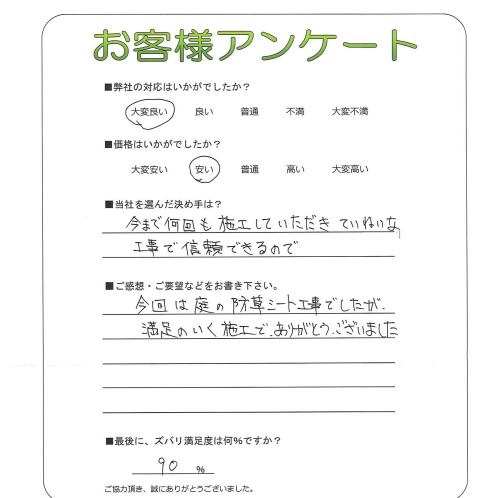 お客様アンケート
■弊社の対応はいかがでしたか？
大変良い 良い 普通 不満 大変不満
■価格はいかがでしたか？
大変安い 安い 普通 高い 大変高い
■当社を選んだ決め手は？
今まで何回も施工していただきていねいな
工事で信頼できるので
■ご感想・ご要望などをお書き下さい。
今回は庭の防草シート工事でしたが、
満足のいく施工で、ありがとう、ございました
■最後に、ズバリ満足度は何%ですか？
90 %
ご協力頂き、誠にありがとうございました。